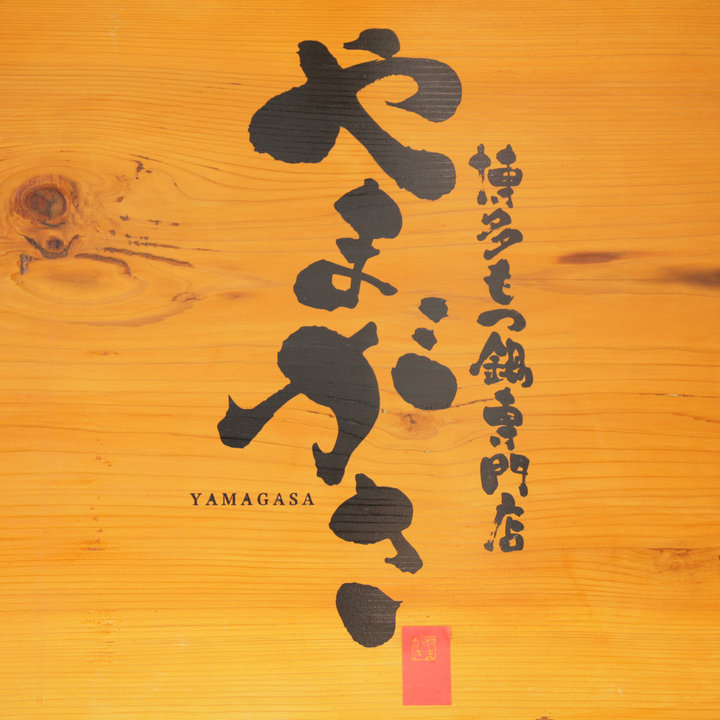 博多もつ鍋専門店
やまがさ
YAMAGASA